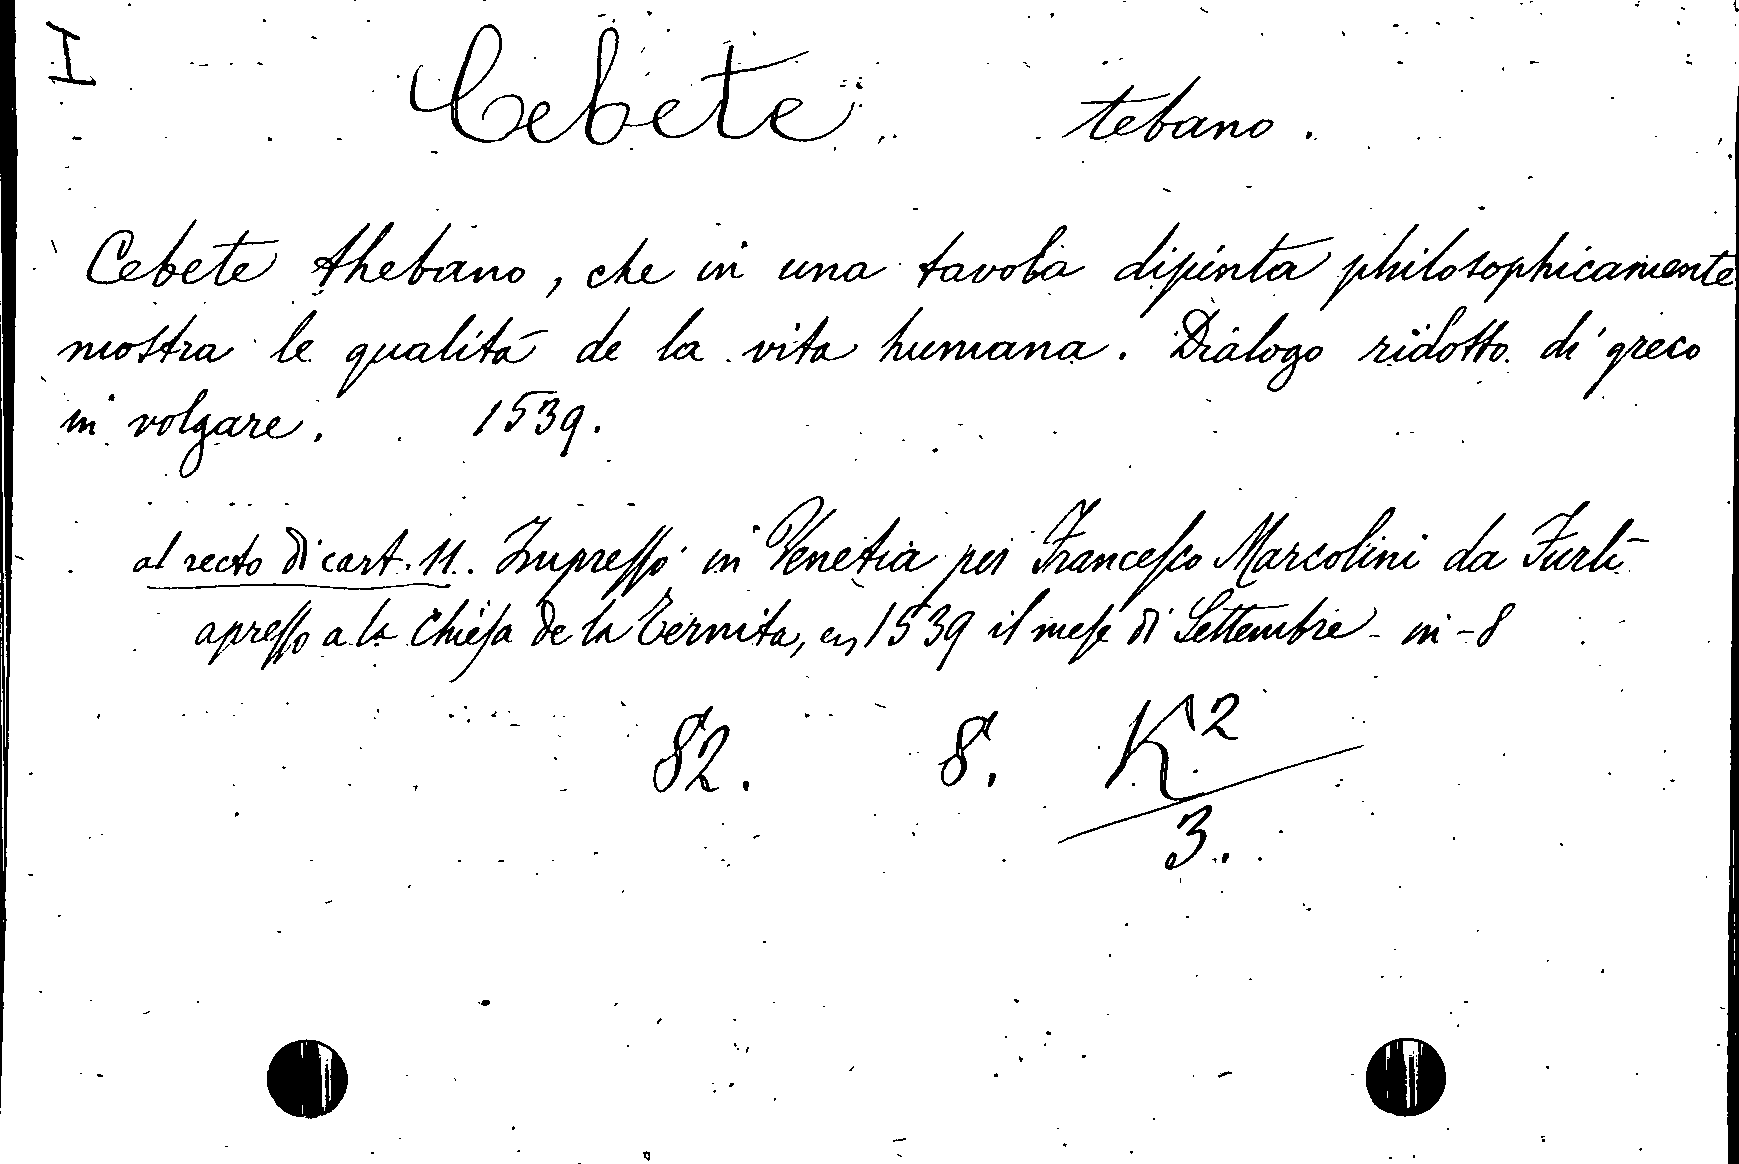 I
Cebete tebano.
Cebete thebano, che in una tavola dipinta philosophicamente
mostra le qualità de la vita humana. Dialogo ridotto di greco
in volgare. 1539.
al recto di cart. 11. Impresso in Venetia per Francesco Marcolini da Furlì
apresso a la Chiesa de la Ternita, en 1539 il mese di Settembre - in-8
82. 8. K²
3.